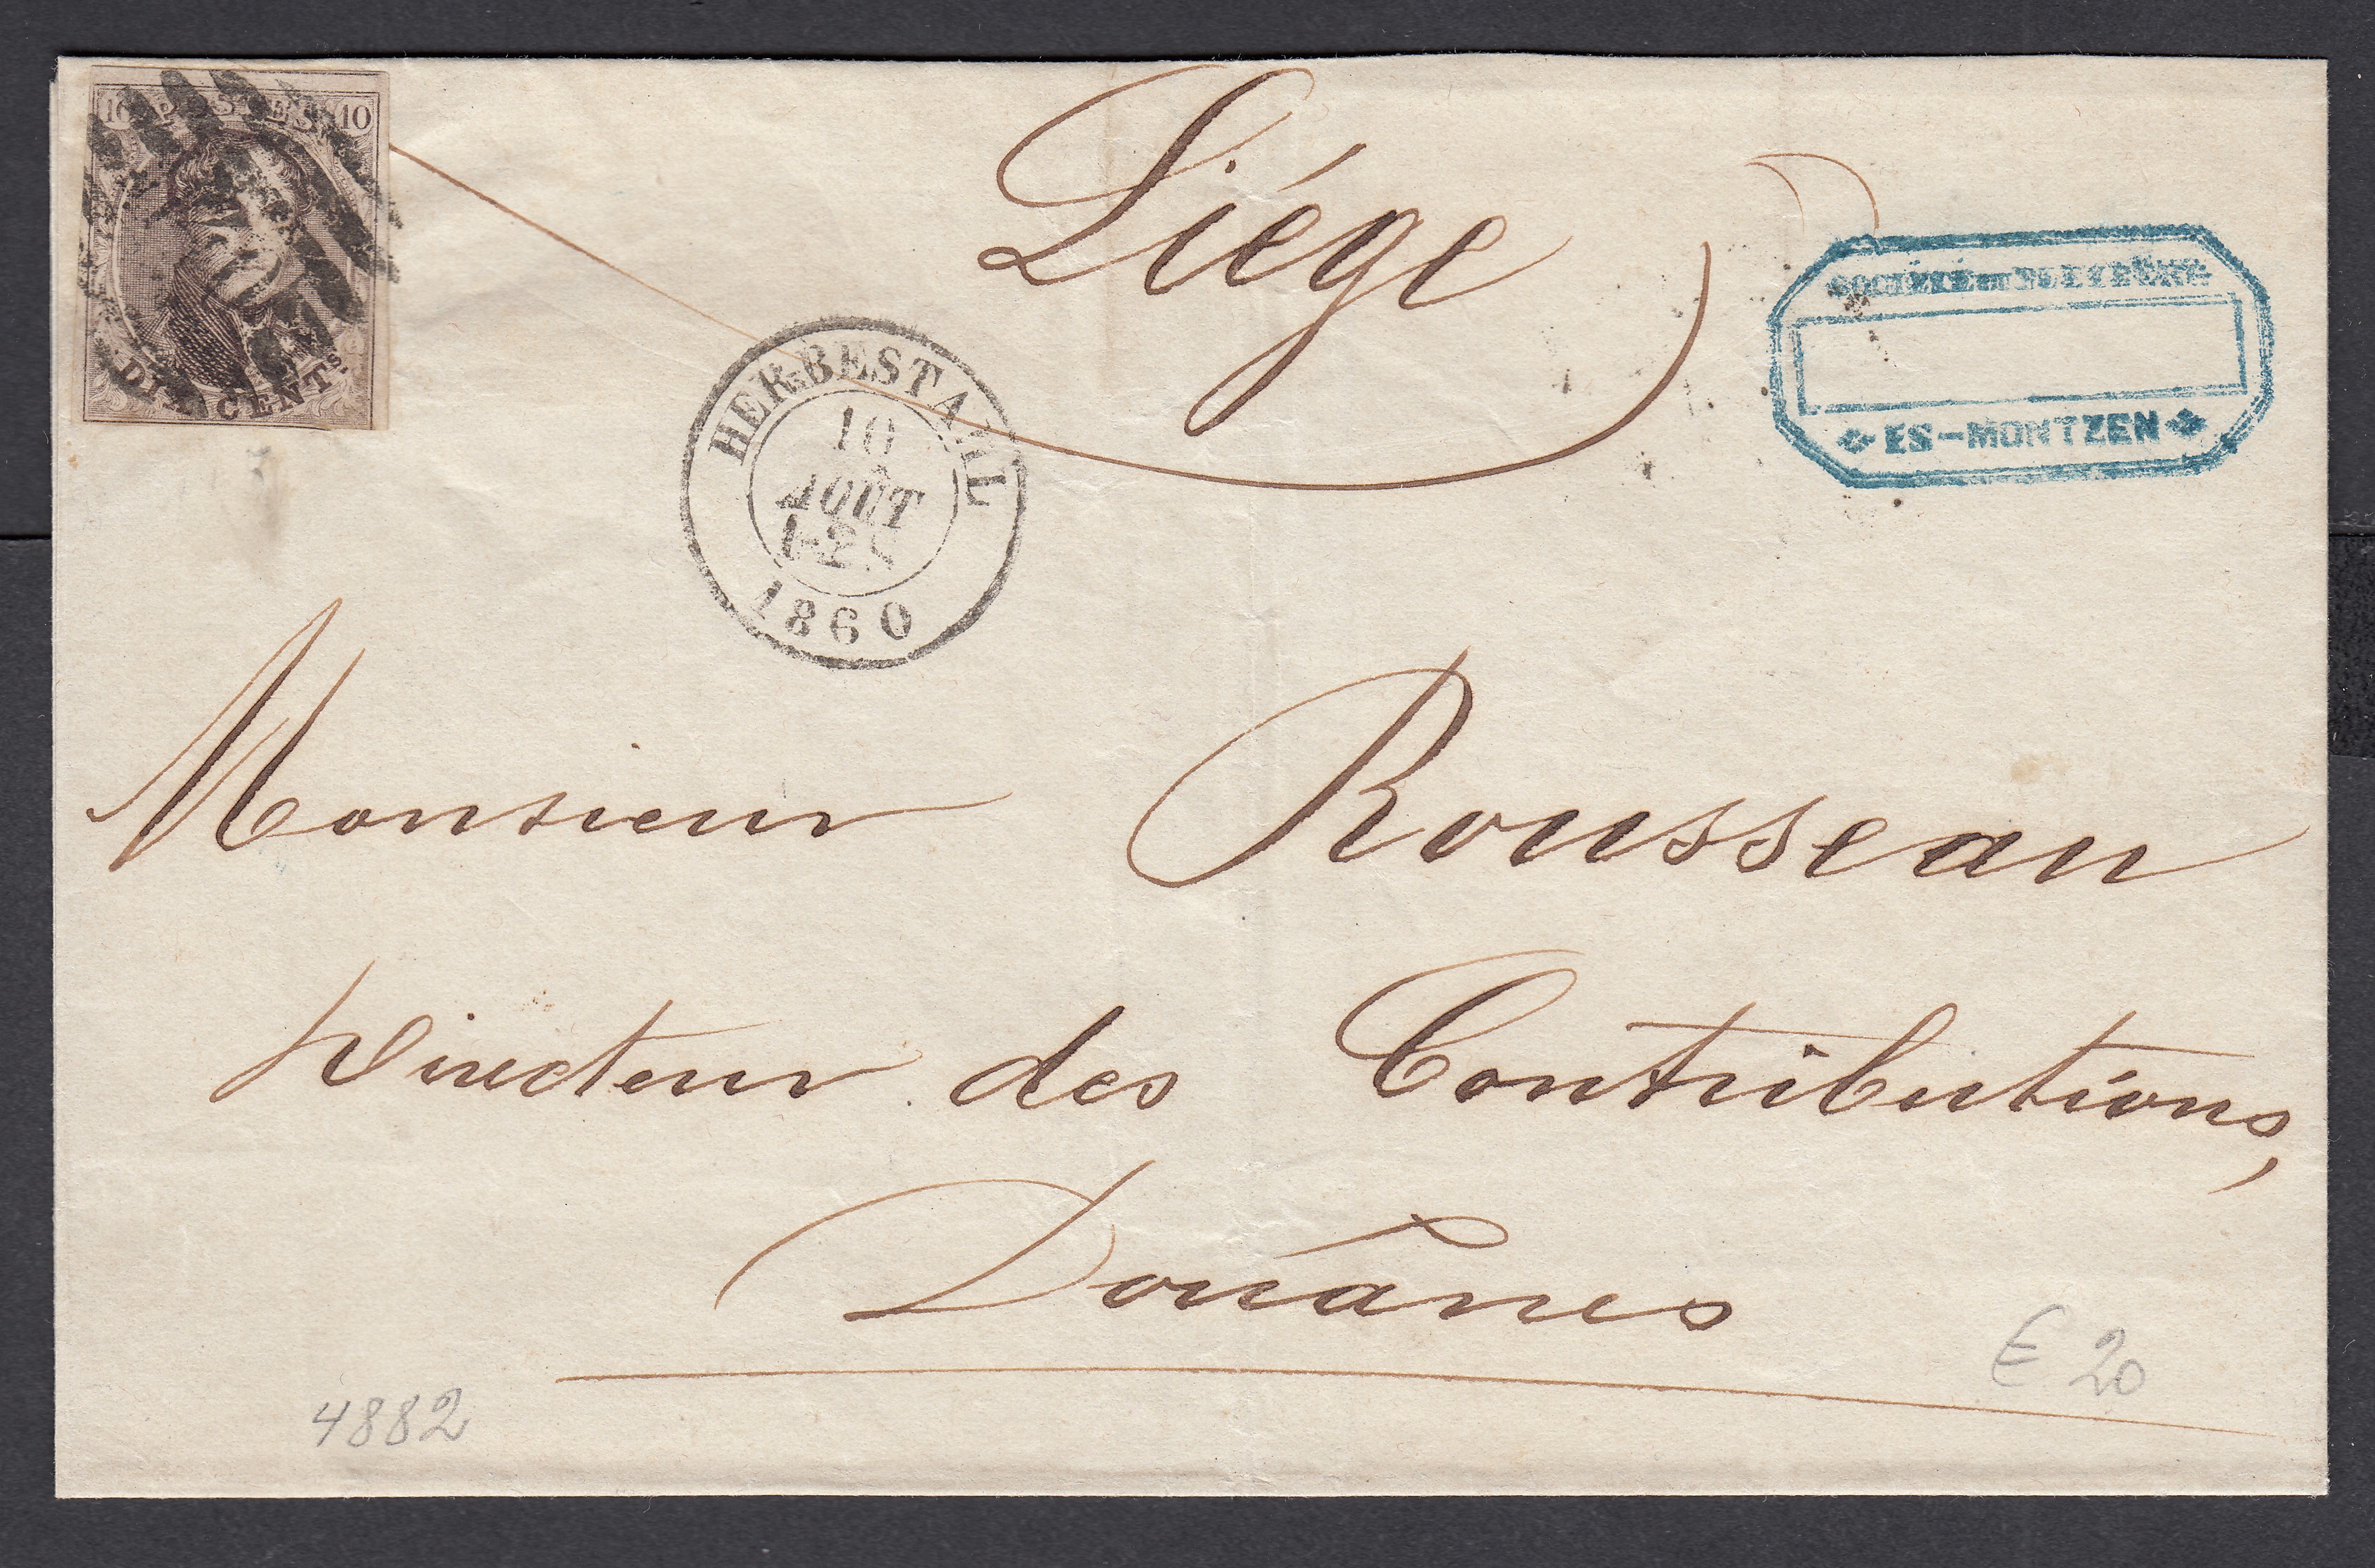 10 POSTES 10
DIX CENTS
Liége
SOCIÉTÉ DE BLEYBERG
ES-MONTZEN
HERBESTAAL
10
AOÛT
1-2 S
1860
Monsieur Rousseau
Directeur des Contributions,
Douânes
4882
€ 20